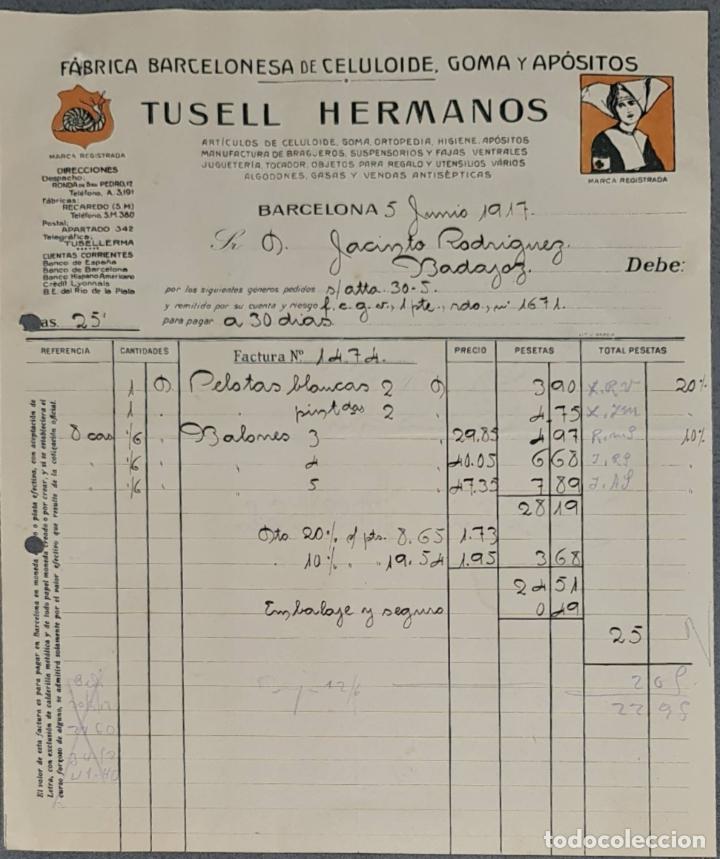 FÁBRICA BARCELONESA DE CELULOIDE, GOMA Y APÓSITOS
TUSELL HERMANOS
MARCA REGISTRADA
MARCA REGISTRADA
ARTÍCULOS DE CELULOIDE, GOMA, ORTOPEDIA, HIGIENE, APÓSITOS
MANUFACTURA DE BRAGUEROS, SUSPENSORIOS Y FAJAS VENTRALES
JUGUETERÍA, TOCADOR, OBJETOS PARA REGALO Y UTENSILIOS VARIOS
ALGODONES, GASAS Y VENDAS ANTISÉPTICAS
DIRECCIONES
Despacho:
RONDA DE SAN PEDRO, 17
Teléfono, A. 3,191
Fábricas:
RECAREDO (S.M)
Teléfono, S.M. 380
Postal:
APARTADO 342
Telegráfica:
TUSELLERMA
CUENTAS CORRIENTES
Banco de España
Banco de Barcelona
Banco Hispano Americano
Crédit Lyonnais
B.E. del Rio de la Plata
BARCELONA 5 Junio 1917.
Sr. D. Jacinto Rodriguez.
Badajoz.
Debe:
por los siguientes géneros pedidos s/atta. 30-5.
y remitido por su cuenta y riesgo f.c.g.v., 1 pte., rdo., nº 1671.
para pagar a 30 dias.
as. 25'
REFERENCIA CANTIDADES Factura Nº 1474. PRECIO PESETAS TOTAL PESETAS
1 D. Pelotas blancas 2 D. 3 90 20%
1 " " pintdas 2 " 4 75 "
8 cas 1/6 " Balones 3 " 29.85 4 97 10%
" 1/6 " " 4 " 40.05 6 68 "
" 1/6 " " 5 " 47.35 7 89 "
28 19
Dto. 20% s/ pts. 8.65 1.73
" 10% " " 19.54 1.95 3 68
24 51
Embalaje y seguro 0 49
25
12/6
2 05
22 95
El valor de esta factura es para pagar en Barcelona en moneda de oro o plata efectiva, con aceptación de
Letra, con exclusión de calderilla metálica y de todo papel moneda creado o por crear, y si se estableciera el
curso forzoso de alguno, se admitirá solamente por el valor efectivo que resulte de la cotización oficial.
todocoleccion.net